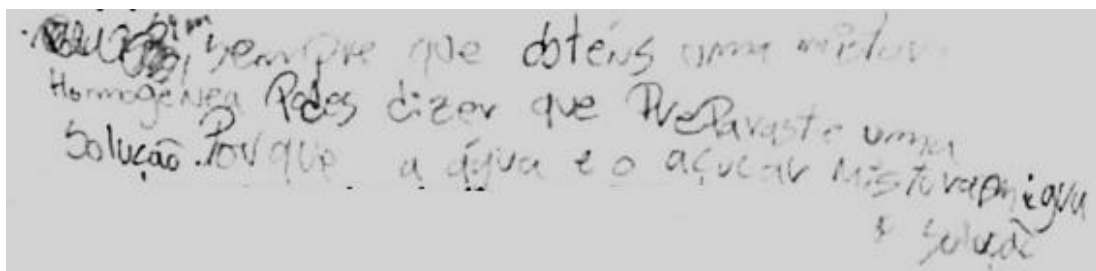 sempre que obténs uma mistura
Homogénea Podes dizer que Preparaste uma
Solução. Porque a água e o açucar misturam
solução